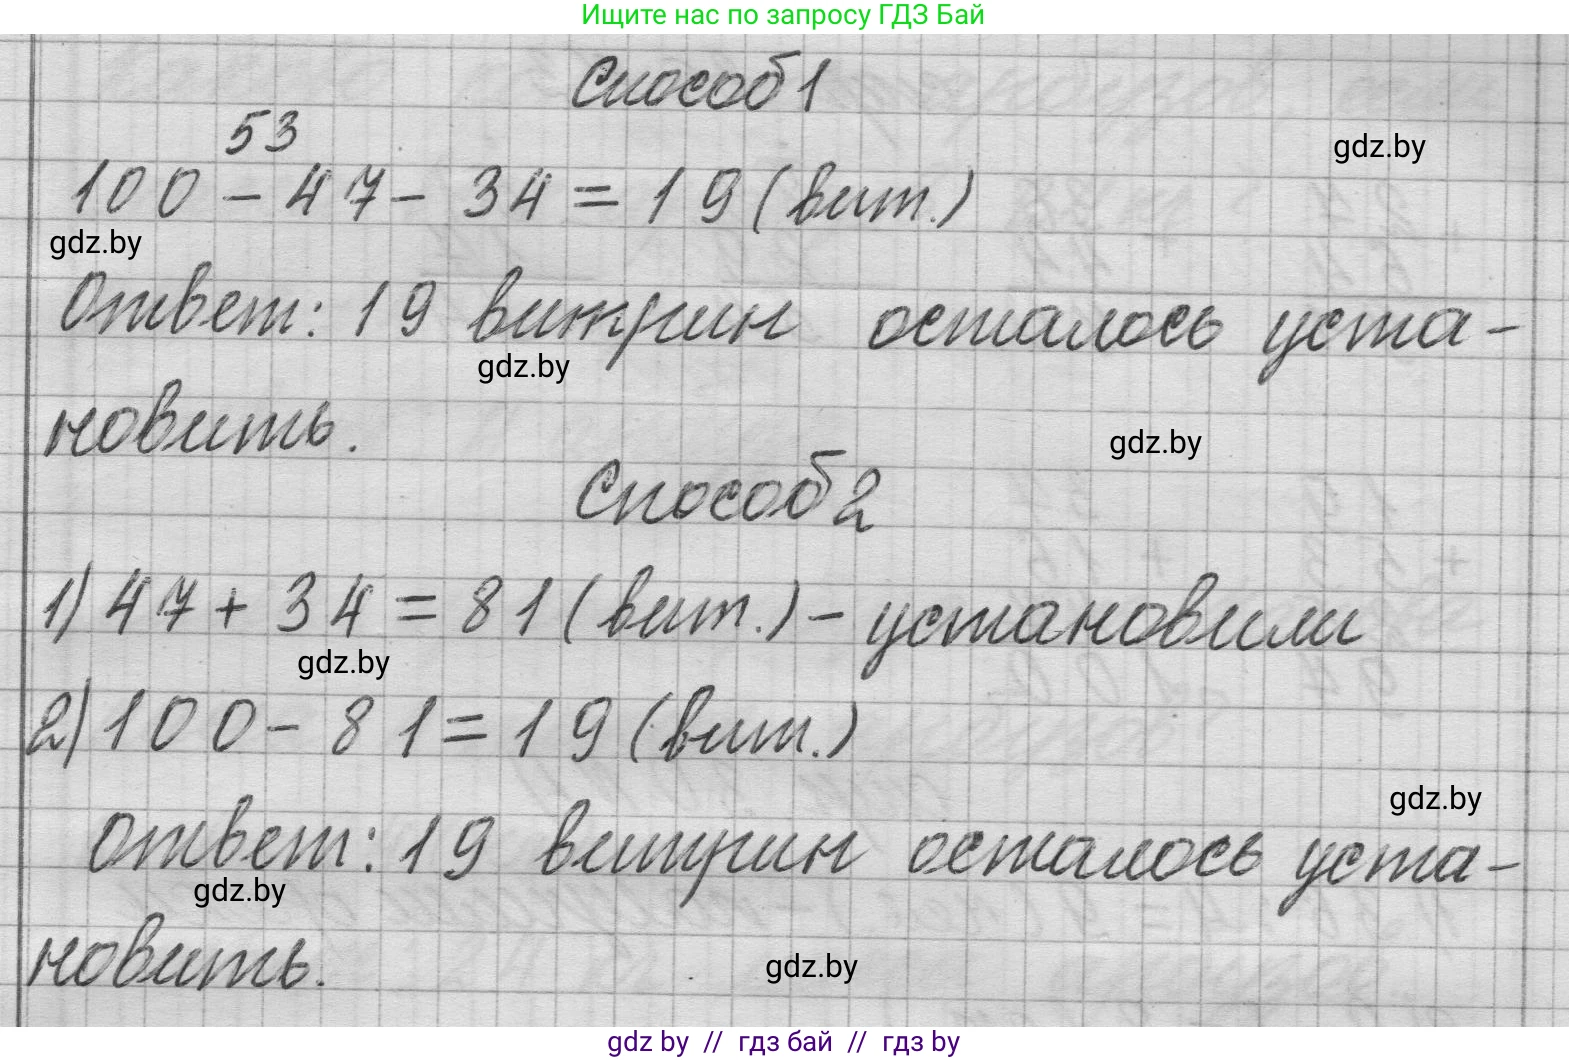 Ищите нас по запросу ГДЗ Бай
Способ 1
53
100 - 47 - 34 = 19 (вит.)
gdz.by
gdz.by
Ответ: 19 витрин осталось уста-
gdz.by
новить.
gdz.by
Способ 2
1) 47 + 34 = 81 (вит.) - установили
gdz.by
2) 100 - 81 = 19 (вит.)
gdz.by
Ответ: 19 витрин осталось уста-
gdz.by
новить.
gdz.by
gdz by // гдз бай // гдз by